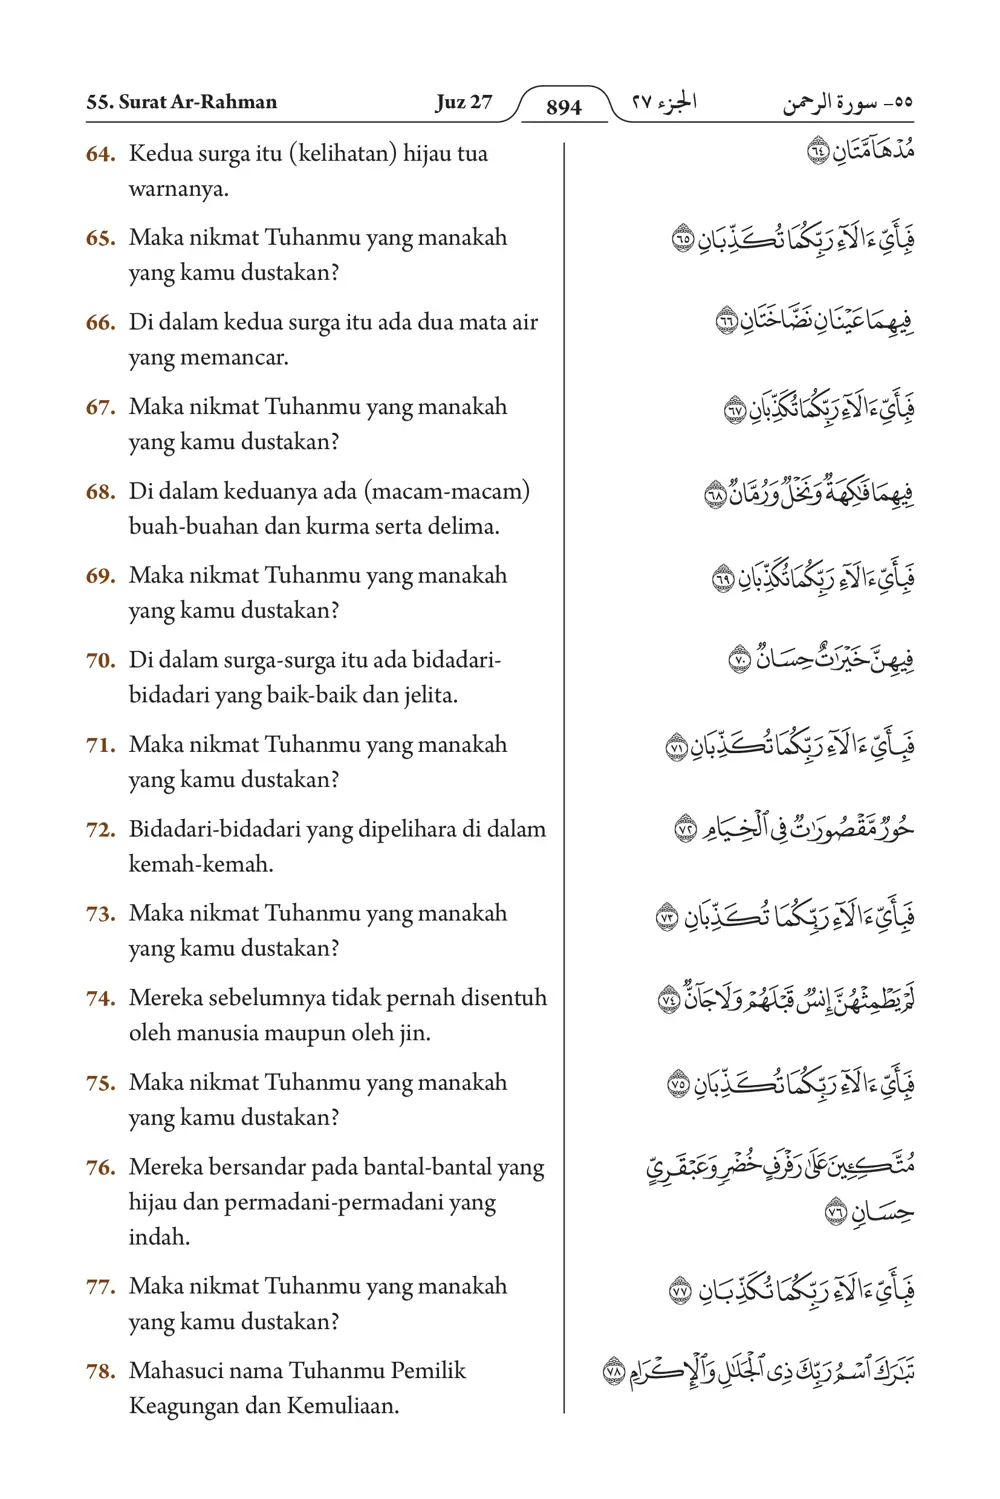 55. Surat Ar-Rahman Juz 27 894 الجزء ٢٧ ٥٥- سورة الرحمن
64. Kedua surga itu (kelihatan) hijau tua
warnanya.
65. Maka nikmat Tuhanmu yang manakah
yang kamu dustakan?
66. Di dalam kedua surga itu ada dua mata air
yang memancar.
67. Maka nikmat Tuhanmu yang manakah
yang kamu dustakan?
68. Di dalam keduanya ada (macam-macam)
buah-buahan dan kurma serta delima.
69. Maka nikmat Tuhanmu yang manakah
yang kamu dustakan?
70. Di dalam surga-surga itu ada bidadari-
bidadari yang baik-baik dan jelita.
71. Maka nikmat Tuhanmu yang manakah
yang kamu dustakan?
72. Bidadari-bidadari yang dipelihara di dalam
kemah-kemah.
73. Maka nikmat Tuhanmu yang manakah
yang kamu dustakan?
74. Mereka sebelumnya tidak pernah disentuh
oleh manusia maupun oleh jin.
75. Maka nikmat Tuhanmu yang manakah
yang kamu dustakan?
76. Mereka bersandar pada bantal-bantal yang
hijau dan permadani-permadani yang
indah.
77. Maka nikmat Tuhanmu yang manakah
yang kamu dustakan?
78. Mahasuci nama Tuhanmu Pemilik
Keagungan dan Kemuliaan.
مُدۡهَآمَّتَانِ ٦٤
فَبِأَيِّ ءَالَآءِ رَبِّكُمَا تُكَذِّبَانِ ٦٥
فِيهِمَا عَيۡنَانِ نَضَّاخَتَانِ ٦٦
فَبِأَيِّ ءَالَآءِ رَبِّكُمَا تُكَذِّبَانِ ٦٧
فِيهِمَا فَٰكِهَةٞ وَنَخۡلٞ وَرُمَّانٞ ٦٨
فَبِأَيِّ ءَالَآءِ رَبِّكُمَا تُكَذِّبَانِ ٦٩
فِيهِنَّ خَيۡرَٰتٌ حِسَانٞ ٧٠
فَبِأَيِّ ءَالَآءِ رَبِّكُمَا تُكَذِّبَانِ ٧١
حُورٞ مَّقۡصُورَٰتٞ فِي ٱلۡخِيَامِ ٧٢
فَبِأَيِّ ءَالَآءِ رَبِّكُمَا تُكَذِّبَانِ ٧٣
لَمۡ يَطۡمِثۡهُنَّ إِنسٞ قَبۡلَهُمۡ وَلَا جَآنّٞ ٧٤
فَبِأَيِّ ءَالَآءِ رَبِّكُمَا تُكَذِّبَانِ ٧٥
مُتَّكِـِٔينَ عَلَىٰ رَفۡرَفٍ خُضۡرٖ وَعَبۡقَرِيٍّ
حِسَانٖ ٧٦
فَبِأَيِّ ءَالَآءِ رَبِّكُمَا تُكَذِّبَانِ ٧٧
تَبَٰرَكَ ٱسۡمُ رَبِّكَ ذِي ٱلۡجَلَٰلِ وَٱلۡإِكۡرَامِ ٧٨